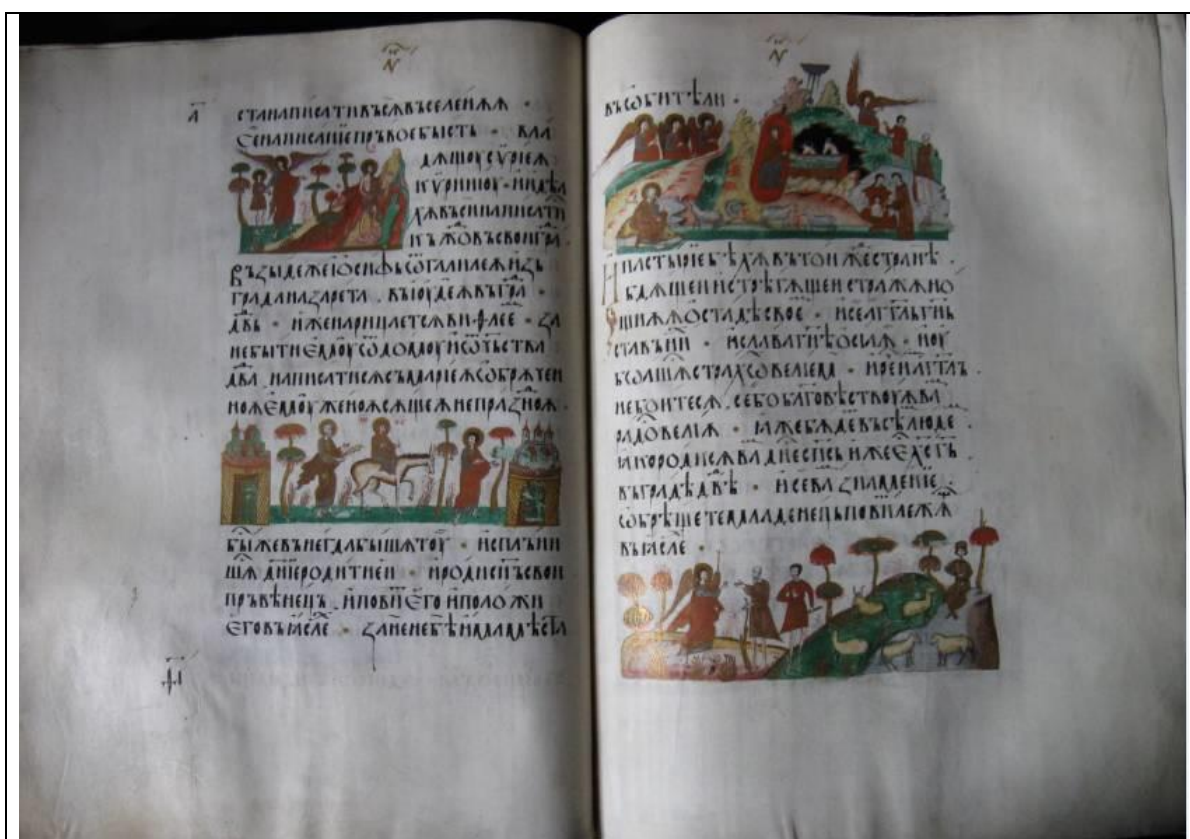 а҃ станаписативъсѫвъселенѫѫ ·
Сенаписанїепръвоебысть · вла
дѫщоусѵрїеѫ
кѵринїоу · индѣа
хѫвъсинаписати
къждовъсвоигра
Възыдежеїосифьѿгалилеѫизь
граданазарета . въїоудеѫвъгра
двь · иженарицаетсѧвиѳлее · за
небытиемоуѿдомоуиѡтьства
два . написатисѧсъмарїеѫѡбрѫчен
ноѫемоуженоѫсѫщеѫнепразноѫ .
быжевънегдабышѧтоу · исплъни
шѧднїеродитиеи · иродиснъсвои
пръвѣнець . иповиегоиположи
еговъꙗсле · заненебѣимамѣста
въѡбитѣли .
Ипастырїебѣхѫвътоижестранѣ .
бдѧщеиистрѣгѫщеистражѫно
щнѫѫостадѣсвое · исеаггльгнь
ставънии · иславагнѣосиа · иоу
боѧшѧстрахѡвелїем · иречиаггль .
небоитесѧ . себоблаговѣствоуѫва
радовелїѧ · ꙗжебѫдевъсѣлюде
ꙗкородисѧваднесьспсьижеехсгь
въградѣдвѣ · исевазнаменїе .
ѡбрѧщетемладенецьповилежѧ
въꙗсле ·